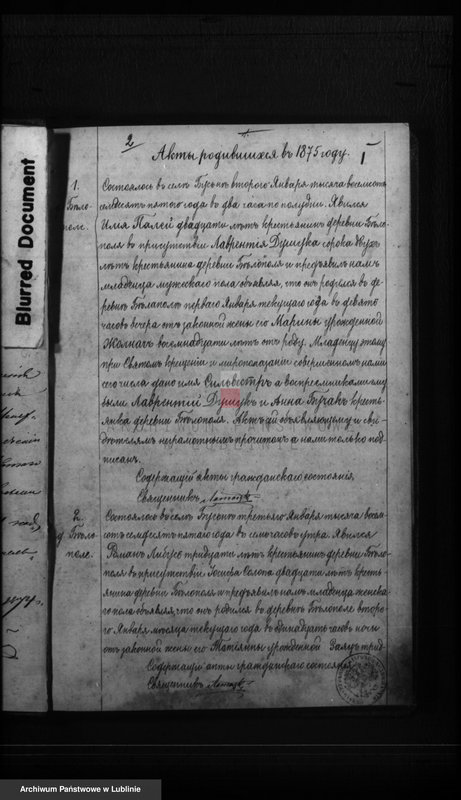 2
Акты родившихся въ 1875 году.
1
1.
Бѣло-
поле.
Состоялось въ селѣ второго Января тысяча восемсотъ
семдесятъ пятого года въ два часа по полудни. Явился
Илія Палей двадцати лѣтъ крестьянинъ деревни Бѣло-
поля въ присутствіи Лаврентія Душука сорока двухъ
лѣтъ крестьянина деревни Бѣлополя и предъявилъ намъ
младенца мужескаго пола объявляя, что онъ родился въ де-
ревнѣ Бѣлополѣ перваго Января текущаго года въ девять
часовъ вечера отъ законной жены его Марины урожденной
восемнадцати лѣтъ отъ роду. Младенцу этому
при Святомъ крещеніи и миропомазаніи совершенномъ нами
сего числа дано имя Сильвестръ а воспреемниками ему
были Лаврентій Душукъ и Анна кресть-
янка деревни Бѣлополя. Актъ сей объявляющему и сви-
дѣтелямъ неграмотнымъ прочитанъ а нами только под-
писанъ.
Содержащій акты гражданскаго состоянія,
Священникъ
2.
д. Бѣло-
поле.
Состоялось въ селѣ третьяго Января тысяча восем-
сотъ семдесятъ пятаго года въ семь часовъ утра. Явился
Романъ тридцати лѣтъ крестьянинъ деревни Бѣло-
поля въ присутствіи Іосифа двадцати лѣтъ кресть-
янина деревни Бѣлополя и предъявилъ намъ младенца женска-
го пола объявляя, что онъ родился въ деревнѣ Бѣлополѣ второ-
го Января мѣсяца текущаго года въ одинадцать часовъ ночи
отъ законной жены его Татіянны урожденной Заяцъ трид-
Содержащій акты гражданскаго состоянія
Священникъ
Blurred Document
Archiwum Państwowe w Lublinie